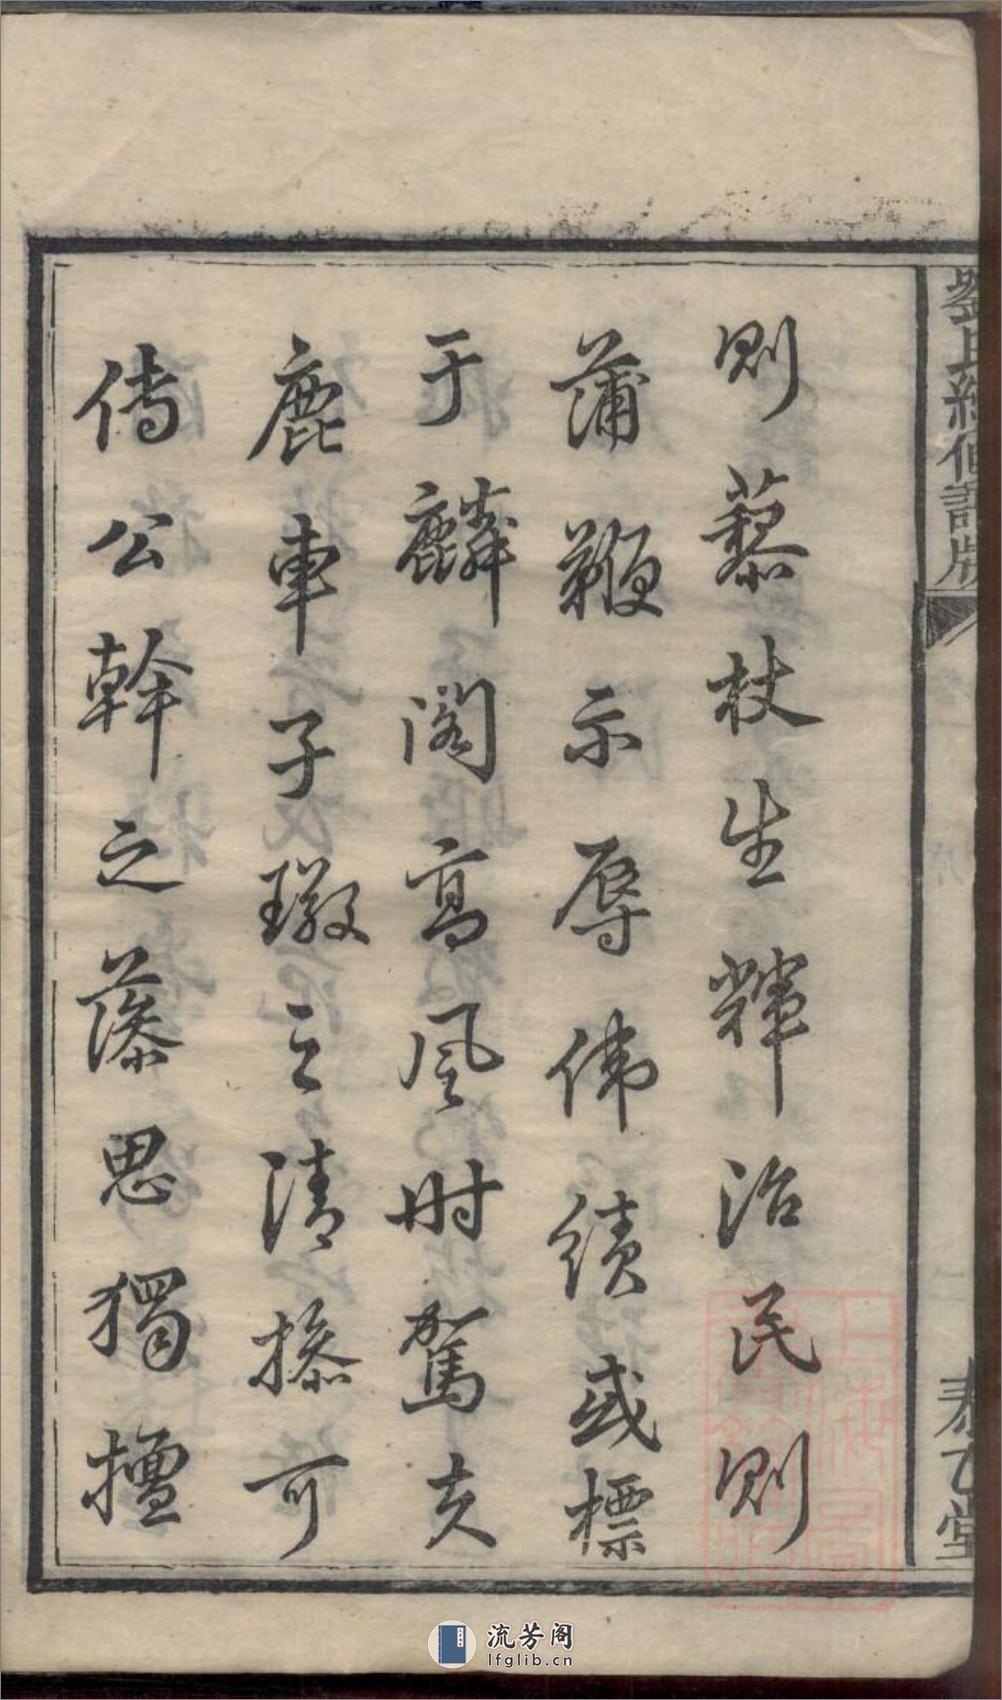 則藜杖生輝治民則
蒲鞭示辱偉績或標
于麟閣高風時駕夫
鹿車子璈之清操可
傳公幹之藻思獨擅
劉氏續修譜牒
泰乙堂
流芳阁
lfglib.cn